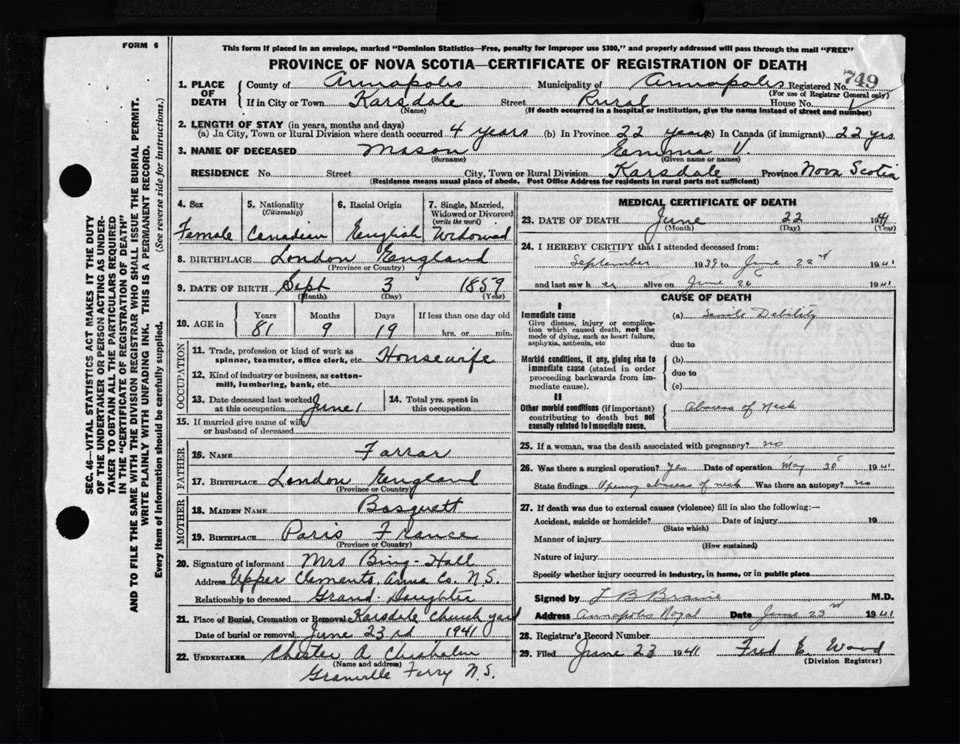 FORM 6
This form if placed in an envelope, marked "Dominion Statistics—Free, penalty for improper use $300," and properly addressed will pass through the mail "FREE"
PROVINCE OF NOVA SCOTIA—CERTIFICATE OF REGISTRATION OF DEATH
749
1. PLACE OF DEATH County of Annapolis Municipality of Annapolis Registered No.
(For use of Registrar General only)
If in City or Town Karsdale Street Rural House No.
(Name) (If death occurred in a hospital or institution, give the name instead of street and number)
2. LENGTH OF STAY (in years, months and days)
(a) In City, Town or Rural Division where death occurred 4 years (b) In Province 22 years (c) In Canada (if immigrant) 22 yrs
3. NAME OF DECEASED Mason Emma V.
(Surname) (Given name or names)
RESIDENCE No. Street City, Town or Rural Division Karsdale Province Nova Scotia
(Residence means usual place of abode. Post Office Address for residents in rural parts not sufficient)
4. Sex Female
5. Nationality (Citizenship) Canadian
6. Racial Origin English
7. Single, Married, Widowed or Divorced (write the word) Widowed
8. BIRTHPLACE London England
(Province or Country)
9. DATE OF BIRTH Sept 3 1859
(Month) (Day) (Year)
10. AGE in Years 81 Months 9 Days 19 If less than one day old hrs. or min.
OCCUPATION
11. Trade, profession or kind of work as spinner, teamster, office clerk, etc. Housewife
12. Kind of industry or business, as cotton-mill, lumbering, bank, etc.
13. Date deceased last worked at this occupation June 1
14. Total yrs. spent in this occupation
15. If married give name of wife or husband of deceased
FATHER
16. NAME Farrar
17. BIRTHPLACE London England
(Province or Country)
MOTHER
18. MAIDEN NAME Basquett
19. BIRTHPLACE Paris France
(Province or Country)
20. Signature of informant Mrs Bing-Hall
Address Upper Clements, Anna Co. N.S.
Relationship to deceased Grand Daughter
21. Place of Burial, Cremation or Removal Karsdale Church yard
Date of burial or removal June 23rd 1941
22. UNDERTAKER Chester A Chisholm
(Name and address)
Granville Ferry N.S.
MEDICAL CERTIFICATE OF DEATH
23. DATE OF DEATH June 22 1941
(Month) (Day) (Year)
24. I HEREBY CERTIFY that I attended deceased from:
September 1939 to June 22nd 1941
and last saw her alive on June 20 1941
CAUSE OF DEATH
I
Immediate cause
Give disease, injury or complication which caused death, not the mode of dying, such as heart failure, asphyxia, asthenia, etc
(a) Senile Debility
due to
Morbid conditions, if any, giving rise to immediate cause (stated in order proceeding backwards from immediate cause).
(b)
due to
(c)
II
Other morbid conditions (if important) contributing to death but not causally related to immediate cause.
Abscess of Neck
25. If a woman, was the death associated with pregnancy? no
26. Was there a surgical operation? Yes Date of operation May 20 1941
State findings Opening abscess of neck Was there an autopsy? no
27. If death was due to external causes (violence) fill in also the following:—
Accident, suicide or homicide? Date of injury 19
(State which)
Manner of injury
(How sustained)
Nature of injury
Specify whether injury occurred in industry, in home, or in public place
Signed by L B Braine M.D.
Address Annapolis Royal Date June 23rd 1941
28. Registrar's Record Number
29. Filed June 23 1941 Fred E. Wood
(Division Registrar)
SEC. 46—VITAL STATISTICS ACT MAKES IT THE DUTY
OF THE UNDERTAKER OR PERSON ACTING AS UNDERTAKER
TO OBTAIN ALL THE PARTICULARS REQUIRED
IN THE "CERTIFICATE OF REGISTRATION OF DEATH"
AND TO FILE THE SAME WITH THE DIVISION REGISTRAR WHO SHALL ISSUE THE BURIAL PERMIT.
WRITE PLAINLY WITH UNFADING INK. THIS IS A PERMANENT RECORD.
Every item of Information should be carefully supplied. (See reverse side for instructions.)